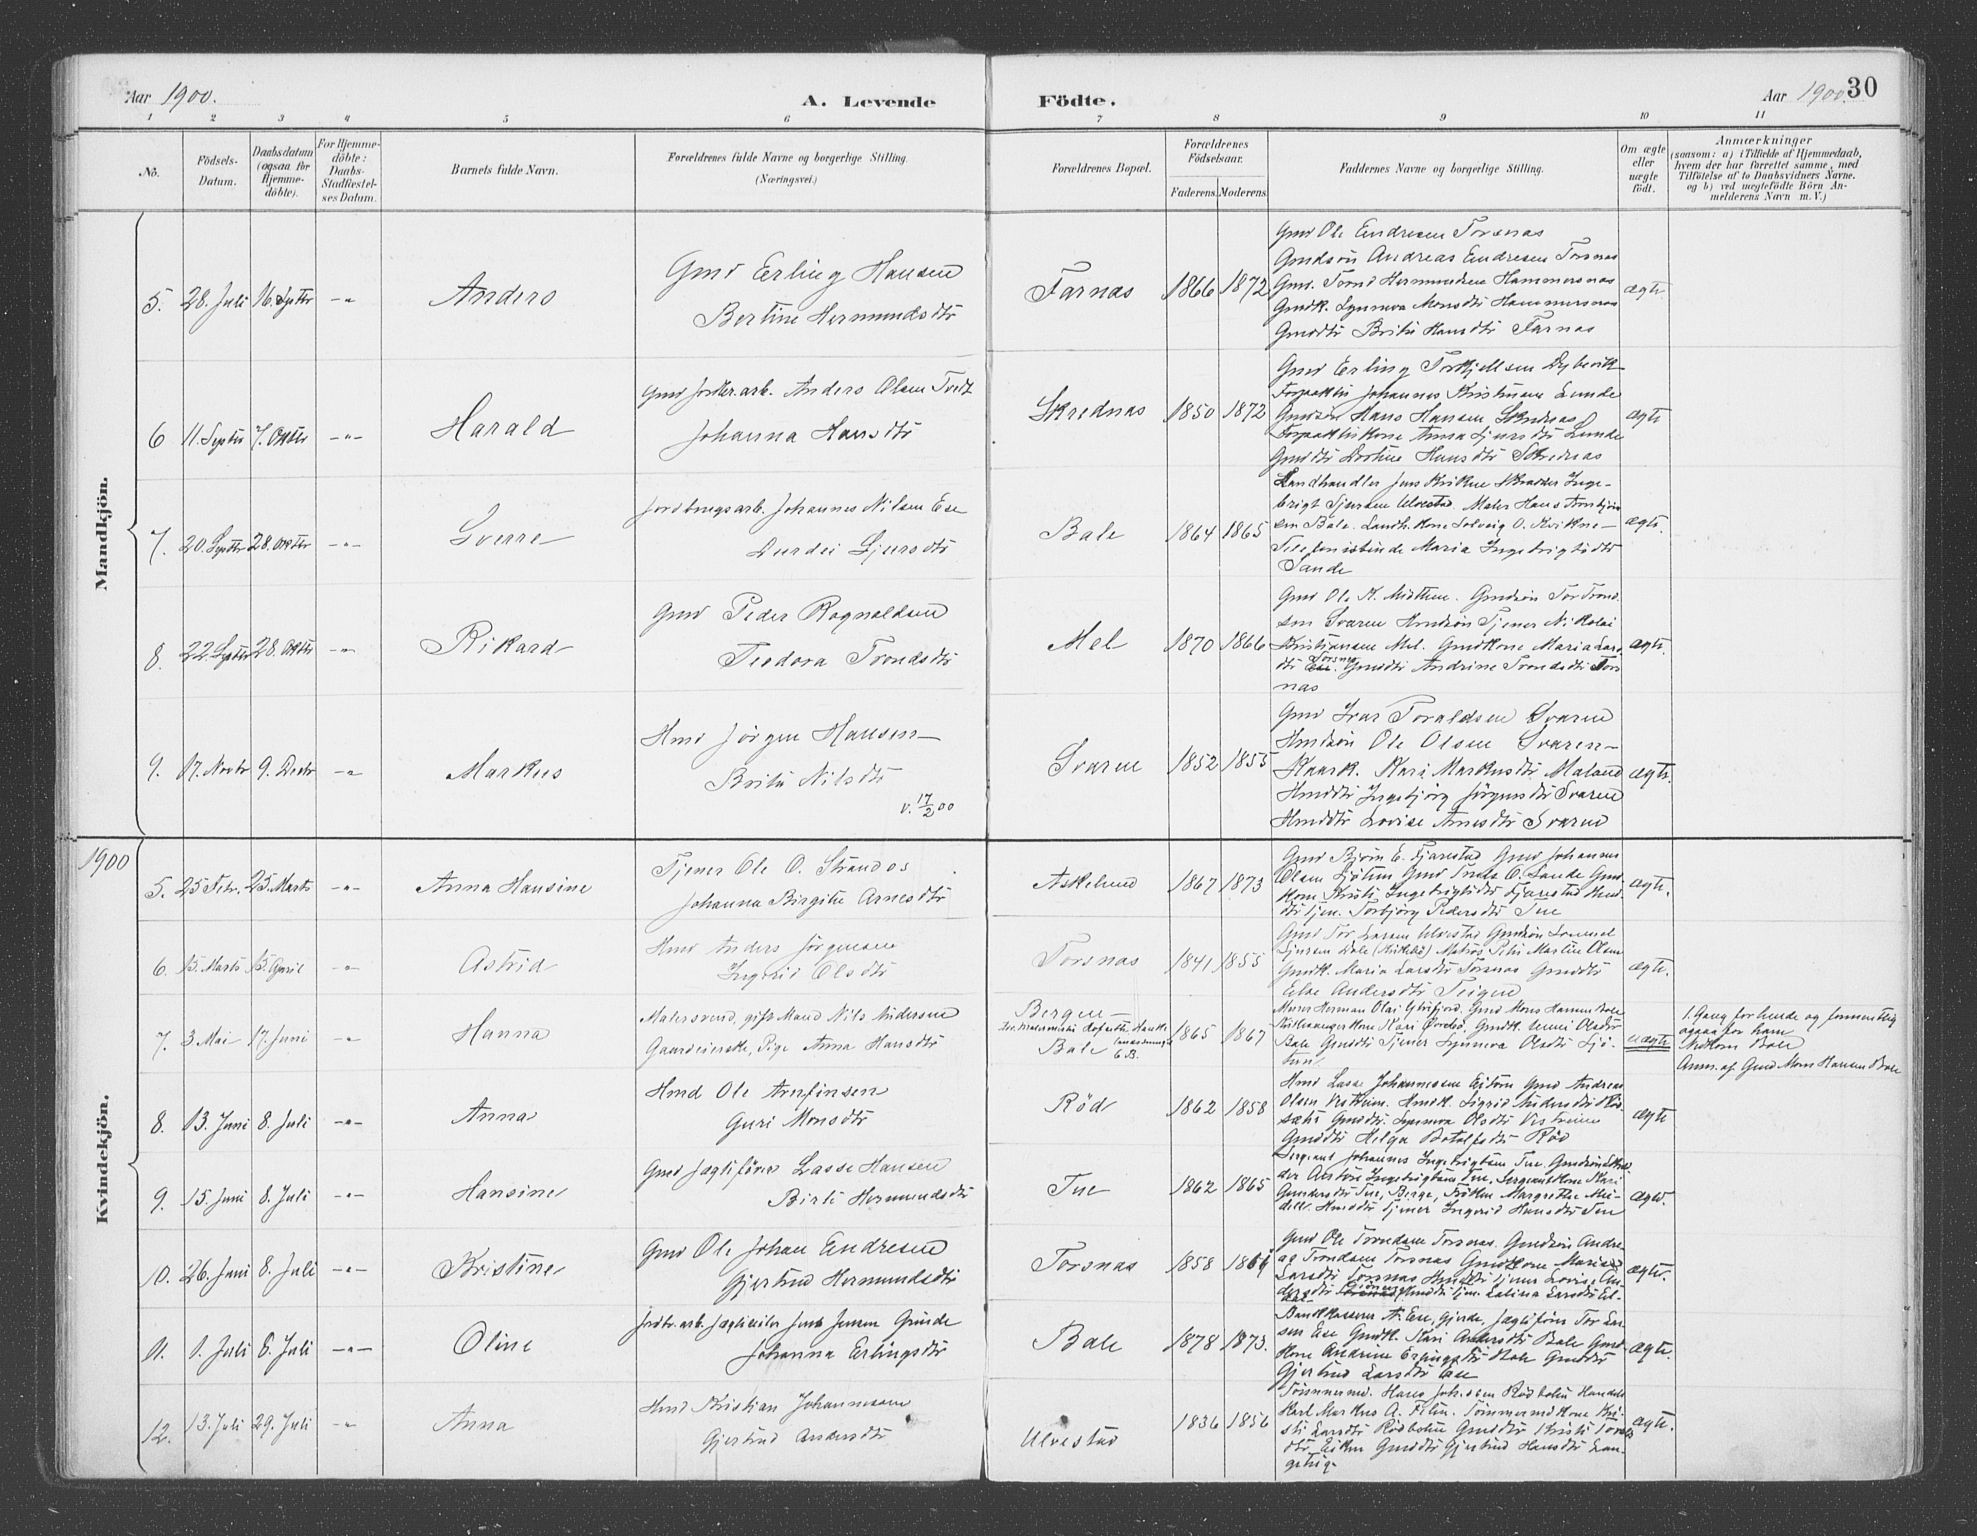 Aar 1900.
A. Levende Födte.
Aar 1900. 30
1 2 3 4 5 6 7 8 9 10 11
No.
Födsels-
Datum.
Daabsdatum
(ogsaa för
Hjemme-
döbte).
For Hjemme-
döbte:
Daabs-
Stadfæstel-
ses Datum.
Barnets fulde Navn.
Forældrenes fulde Navne og borgerlige Stilling.
(Næringsvei.)
Forældrenes Bopæl.
Forældrenes
Födselsaar.
Faderens. Moderens.
Faddernes Navne og borgerlige Stilling.
Om ægte
eller
uægte
födt.
Anmærkninger
(saasom: a) i Tilfælde af Hjemmedaab,
hvem der har forrettet samme, med
Tilföielse af to Daabsvidners Navne,
og b) ved uægtefödte Börn An-
melderens Navn m. V.)
Mandkjön.
5. 28. Juli 16. Septbr -"- Anders
Gmd Erling Hansen
Bertine Hermundsdtr
Farnas 1866 1872
Gmd Ole Endresen Torsnas
Gmdsön Andreas Endresen Torsnas
Gmd. Trond Hermundsen Hammersnas
Gmdk. Synneva Monsdtr Hammersnas
Gmddtr Brita Hansdtr Farnas
ægte
6 11. Septbr 7. Oktbr -"- Harald
Gmd Jordbr.arb. Anders Olsen Tvedt
Johanna Hansdtr
Skrednas 1850 1872
Gmd Erling Torkjellsen Dybevik
Forpagter Johannes Kristiansen Lunde
Gmdsön Hans Hansen Skrednas
Forpagterkone Anna Sjursdtr Lunde
Gmddtr Dortine Hansdtr Skrednas
ægte
7. 20. Septbr 28. Oktbr -"- Sverre
Jordbrugsarb. Johannes Nilsen Ese
Durdei Sjursdtr
Bale 1864 1865
Landhandler Jens Kvikne Inge-
brigt Sjursen Ulvestad. Maler Hans
sen Bale. Landh. Kone Solveig O. Kvikne
Maria Ingebrigtsdtr
Sande
ægte
8. 22. Septbr 28. Oktbr -"- Rikard
Gmd Peder Ragnvaldsen
Teodora Trondsdtr
Mel 1870 1866
Gmd Ole K. Gmdsön Tor Trond
sen Svaren Hmdsön Tjener Nikolai
Kristiansen Mel. Gmdkone Maria Lars
dtr Torsnas. Gmddtr Andrine Trondsdtr Tors
nas
ægte.
9. 17. Novbr 9. Decbr -"- Markus
Hmd Jörgen Hansen
Brita Nilsdtr
v. 17/2 00
Svaren 1852 1855
Gmd Ivar Toraldsen Svaren
Hmdsön Ole Olsen Svaren
Kaark. Kari Markusdtr Maland
Hmddtr Ingebjörg Jörgensdtr Svaren
Hmddtr Lovise Arnesdtr Svaren
ægte.
1900
Kvindekjön.
5. 25 Febr. 25. Marts -"- Anna Hansine
Tjener Ole O. Strandos
Johanna Birgithe Arnesdtr
Askelund 1867 1873
Gmd Björn E. Fjærestad Gmd Johannes
Olsen Sjötun Gmd O. Sande Gmd
kone Kristi Ingebrigtsdtr Fjærestad Hmd
dtr tjen. Torbjörg Pedersdtr Tue
ægte.
6. 15. Marts 15. April -"- Astrid
Hmd Anders Jörgensen
Ingerid Olsdtr
Torsnas 1841 1855
Gmd Tor Larsen Ulvestad Gmdsön
Sjursen Bale Matros Peter Martin Olsen
Gmdk. Maria Larsdtr Torsnas Gmddtr
Else Andersdtr Teigen
ægte.
7. 3. Mai 17. Juni -"- Hanna
Malersvend, gift Mand Nils Andersen
Gaardeierske, Pige Anna Hansdtr
Bergen
Bale 1865 1867
Murer Herman Olai Gmd Mons Hansen Bale
Kari Gmdk. Unni Olsdtr
Bale Gmddtr Tjener Synneva Olsdtr Sjö-
tun
uægte
1. Gang for hende og formentlig
ogsaa for ham
Bale
Anm. af Gmd Mons Hansen Bale
8. 13. Juni 8. Juli -"- Anna
Hmd Ole Arnfinsen
Guri Monsdtr
Röd 1862 1858
Hmd Lasse Johannesen Gmd Andreas
Olsen Vestreim. Hmdk. Sigrid Andersdtr
Gmddtr. Synneva Olsdtr Vestreim
Gmddtr Helga Botolfsdtr Röd
ægte
9. 15. Juni 8. Juli -"- Hansine
Gmd Jagtförer Lasse Hansen
Birte Hermundsdtr
Tue 1862 1865
Sergeant Johannes Ingebrigtsen Tue. Gmdsön
Ingebrigtsen Tue, Sergeantkone Kari
Gundersdtr Tue, Berge, Fröken Margrethe
Hmddtr Tjener Ingerid Hansdtr Tue
ægte.
10. 26. Juni 8. Juli -"- Kristine
Gmd Ole Johan Endresen
Gjertrud Hermundsdtr
Torsnas 1858
Gmd Ole Trondsen Torsnas. Gmdsön Andre-
as Trondsen Torsnas Gmdkone Maria
Larsdtr Torsnas Hmddtr Tjener Lovise An-
dersdtr Hmddtr tjen. Larsdtr
ægte.
11. 1. Juli 8. Juli -"- Oline
Jordbr.arb. Jagteier Jens Jensen Grinde
Johanna Erlingsdtr
Bale 1878 1873.
Bankkasserer A. Ese, Gjerde, Jagtförer Tor Lar-
sen Ese Gmdk. Kari Andersdtr Bale Gmd-
kone Andrine Erlingsdtr Bale Gmddtr
Gjertrud Larsdtr Ese
ægte.
12. 13. Juli 29. Juli -"- Anna
Hmd Kristian Johannesen
Gjertrud Andersdtr
Ulvestad 1836 1856
Tömmermd. Hans Johnsen Rödholen Handels
Karl Markus A. Tömmermdkone Kri-
sti Larsdtr Rödholen Gmddtr Kristi Tors
dtr Gmddtr Gjertrud Hansdtr
ægte.